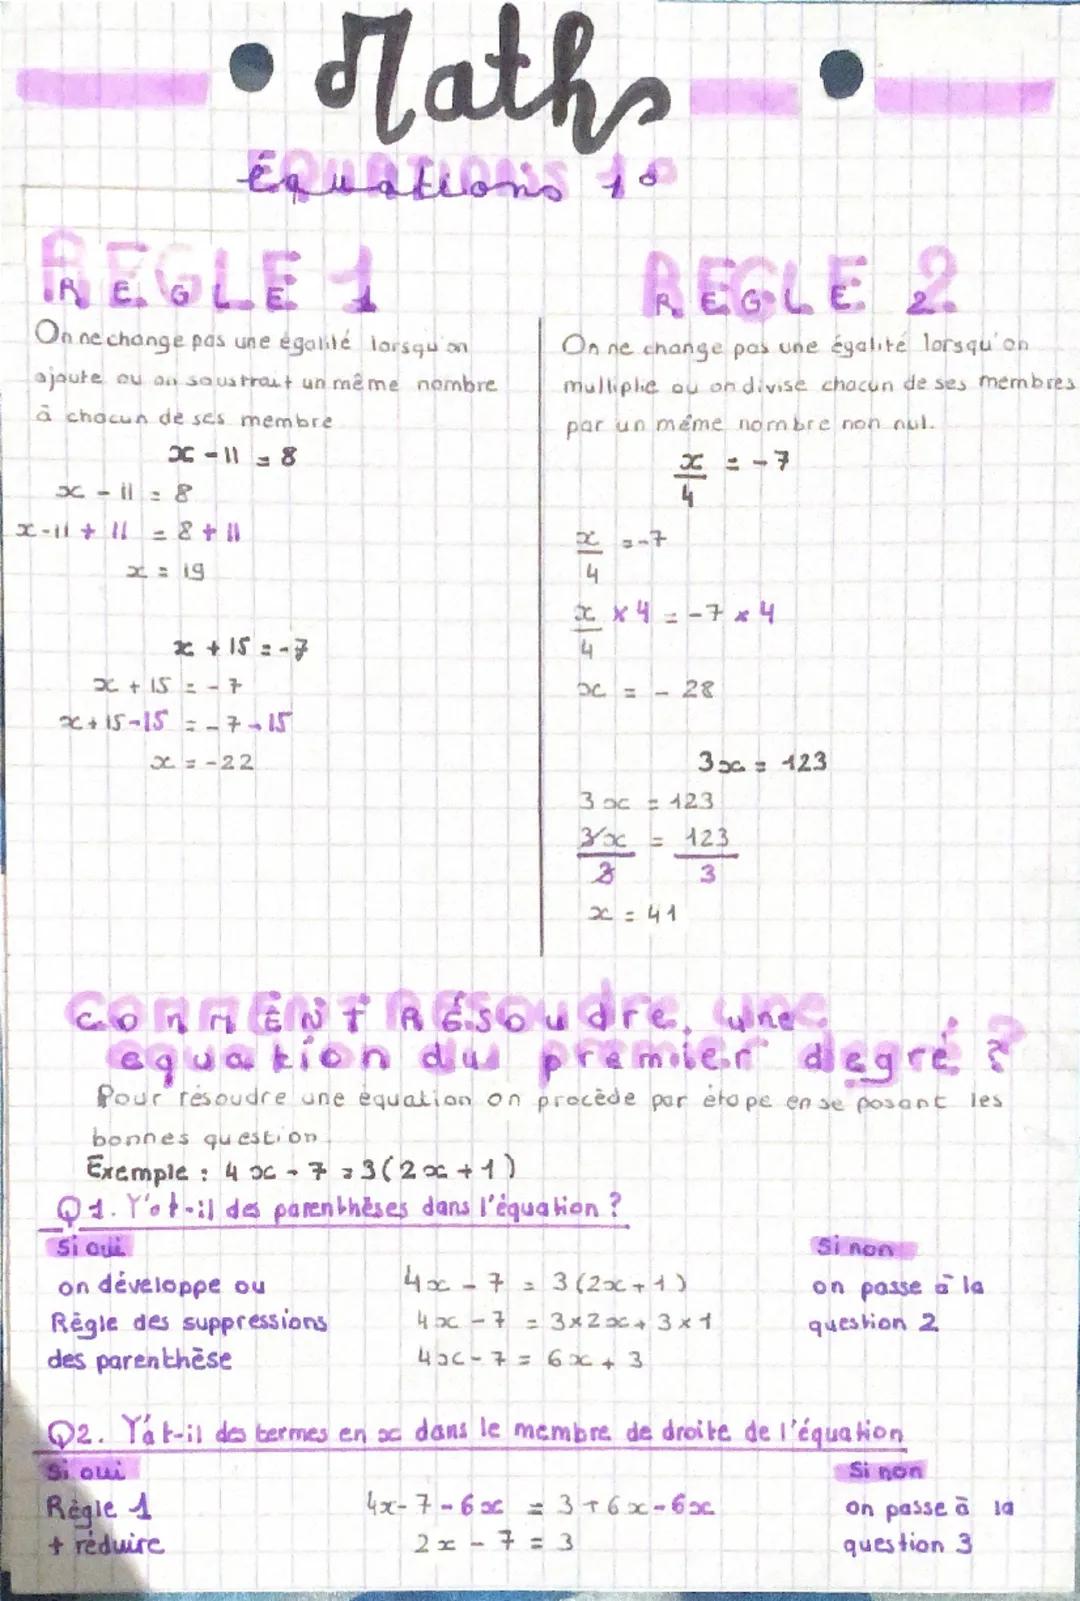 Maths
Équations 1°
REGLE 1
On ne change pas une égalité lorsqu'on
ajoute ou on soustrait un même nombre
à chacun de ses membre
x - 11 = 8
x - 11 = 8
x - 11 + 11 = 8 + 11
x = 19
x + 15 = -7
x + 15 = -7
x + 15 - 15 = -7 - 15
x = -22
REGLE 2
On ne change pas une égalité lorsqu'on
multiplie ou on divise chacun de ses membres
par un même nombre non nul.
x/4 = -7
x/4 = -7
x/4 × 4 = -7 × 4
x = -28
3x = 123
3x = 123
3x/3 = 123/3
x = 41
COMMENT RÉSoudre une
equation du premier degré ?
Pour résoudre une équation on procède par étape en se posant les
bonnes question
Exemple : 4x - 7 = 3(2x + 1)
Q1. Y'at-il des parenthèses dans l'équation ?
Si oui
on développe ou
Règle des suppressions
des parenthèse
4x - 7 = 3(2x + 1)
4x - 7 = 3×2x + 3×1
4x - 7 = 6x + 3
Si non
on passe à la
question 2
Q2. Y'at-il des termes en x dans le membre de droite de l'équation
Si oui
Règle 1
+ réduire
4x - 7 - 6x = 3 + 6x - 6x
2x - 7 = 3
Si non
on passe à la
question 3